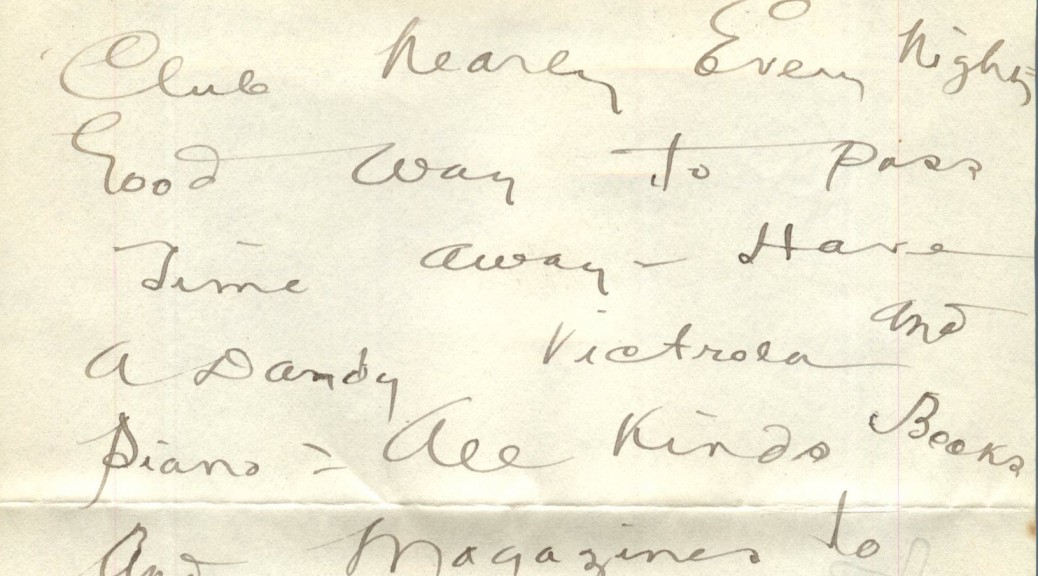 Club Nearly Every Night-
Good way to pass
Time away - Have
a Dandy Victrola and
Piano - All Kinds Books
And Magazines to